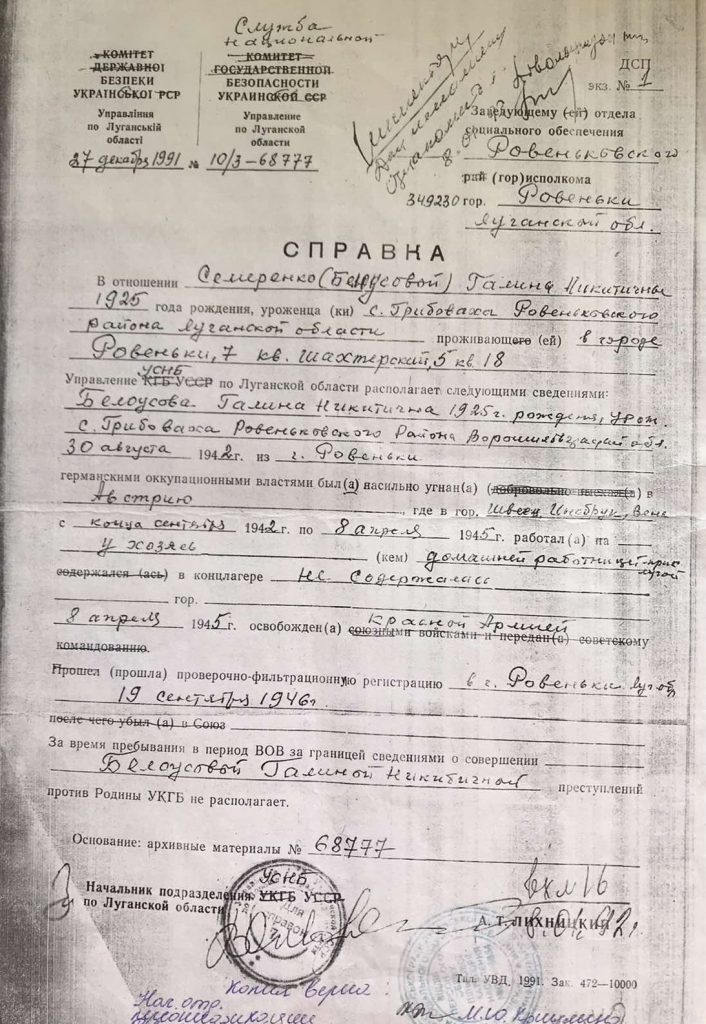 Служба
Национальной
КОМИТЕТ
ДЕРЖАВНОЇ
БЕЗПЕКИ
УКРАЇНСЬКОЇ РСР
Управління
по Луганській
області
КОМИТЕТ
ГОСУДАРСТВЕННОЙ
БЕЗОПАСНОСТИ
УКРАИНСКОЙ ССР
Управление
по Луганской
области
27 декабря 1991 № 10/3-68777
ДСП
экз. № 1
Заведующему (ей) отдела
социального обеспечения
Ровеньковского
рай (гор)исполкома
349230 гор. Ровеньки
Луганской обл.
СПРАВКА
В отношении Семеренко (Белоусовой) Галина Никитичны
1925 года рождения, уроженца (ки) с. Грибоваха Ровеньковского
района Луганской области проживающего (ей) в городе
Ровеньки, 7 кв. Шахтерский, 5 кв. 18
УСНБ
Управление КГБ УССР по Луганской области располагает следующими сведениями:
Белоусова Галина Никитична 1925 г. рождения, урож.
с. Грибоваха Ровеньковского района Ворошиловградской обл.
30 августа 1942 г. из г. Ровеньки
германскими оккупационными властями был(а) насильно угнан(а) (добровольно выехал(а) в
Австрию, где в гор. Инсбрук, Вене
с конца сентября 1942 г. по 8 апреля 1945 г. работал(а) на
у хозяев (кем) домашней работницей-прислугой
содержался (ась) в концлагере не содержалась
гор.
8 апреля 1945 г. освобожден(а) Красной Армией союзными войсками и передан(а) советскому
командованию.
Прошел (прошла) проверочно-фильтрационную регистрацию в г. Ровеньки Луг. обл.
19 сентября 1946 г.
после чего убыл (а) в Союз
За время пребывания в период ВОВ за границей сведениями о совершении
Белоусовой Галиной Никитичной преступлений
против Родины УКГБ не располагает.
Основание: архивные материалы № 68777
вх № 16
8.01.92 г.
УСНБ
Начальник подразделения УКГБ УССР
по Луганской области
А. Т. ЛИХНИЦКИЙ
Для справок
Тип. УВД, 1991. Зак. 472—10000
Копия верна:
Нач. отр.